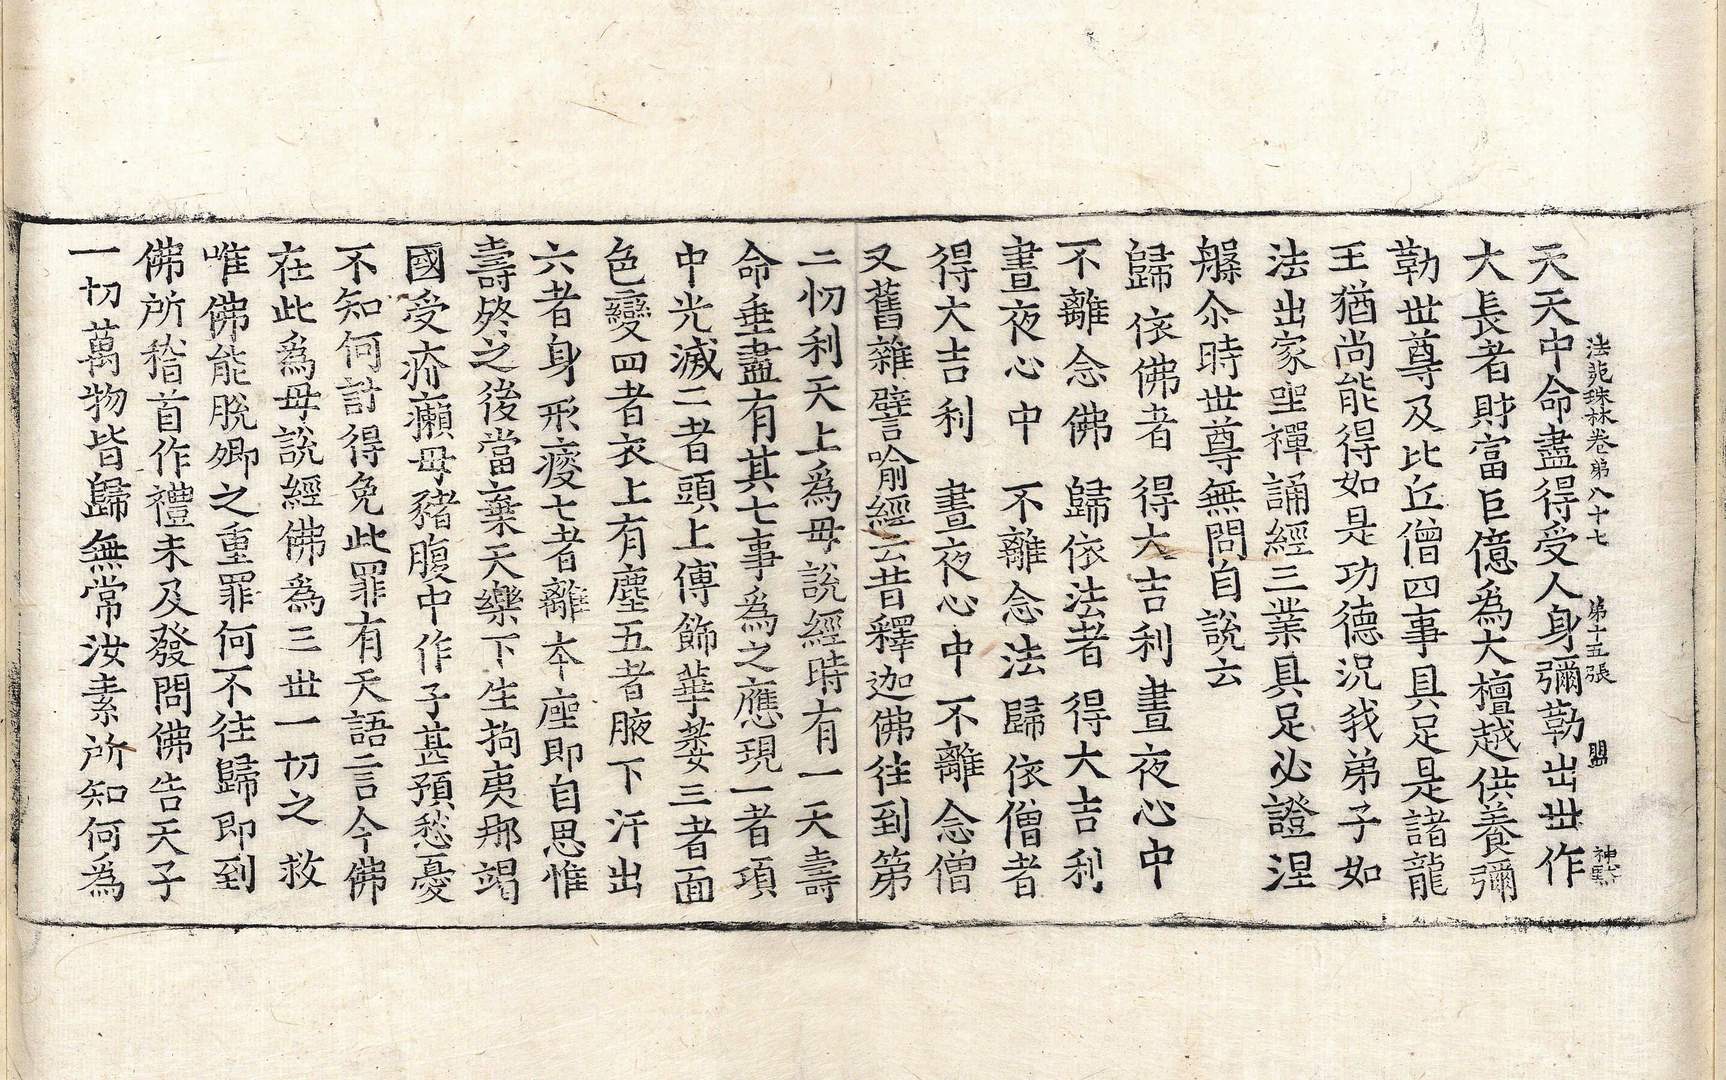 法苑珠林卷第八十七　第十五張　盟　神㸃
天天中命盡得受人身彌勒出世作
大長者財富巨億爲大檀越供養彌
勒世尊及比丘僧四事具足是諸龍
王猶尚能得如是功德況我弟子如
法出家坐禪誦經三業具足必證涅
槃尒時世尊無問自說云
歸依佛者　得大吉利　晝夜心中
不離念佛　歸依法者　得大吉利
晝夜心中　不離念法　歸依僧者
得大吉利　晝夜心中　不離念僧
又舊雜譬喻經云昔釋迦佛往到第
二忉利天上爲母說經時有一天壽
命垂盡有其七事爲之應現一者項
中光滅二者頭上傅飾華萎三者面
色變四者衣上有塵五者腋下汗出
六者身形瘦七者離本座即自思惟
壽終之後當棄天樂下生拘夷那竭
國受疥癩母豬腹中作子甚預愁憂
不知何計得免此罪有天語言今佛
在此爲母說經佛爲三世一切之救
唯佛能脫卿之重罪何不往歸即到
佛所稽首作禮未及發問佛告天子
一切萬物皆歸無常汝素所知何爲